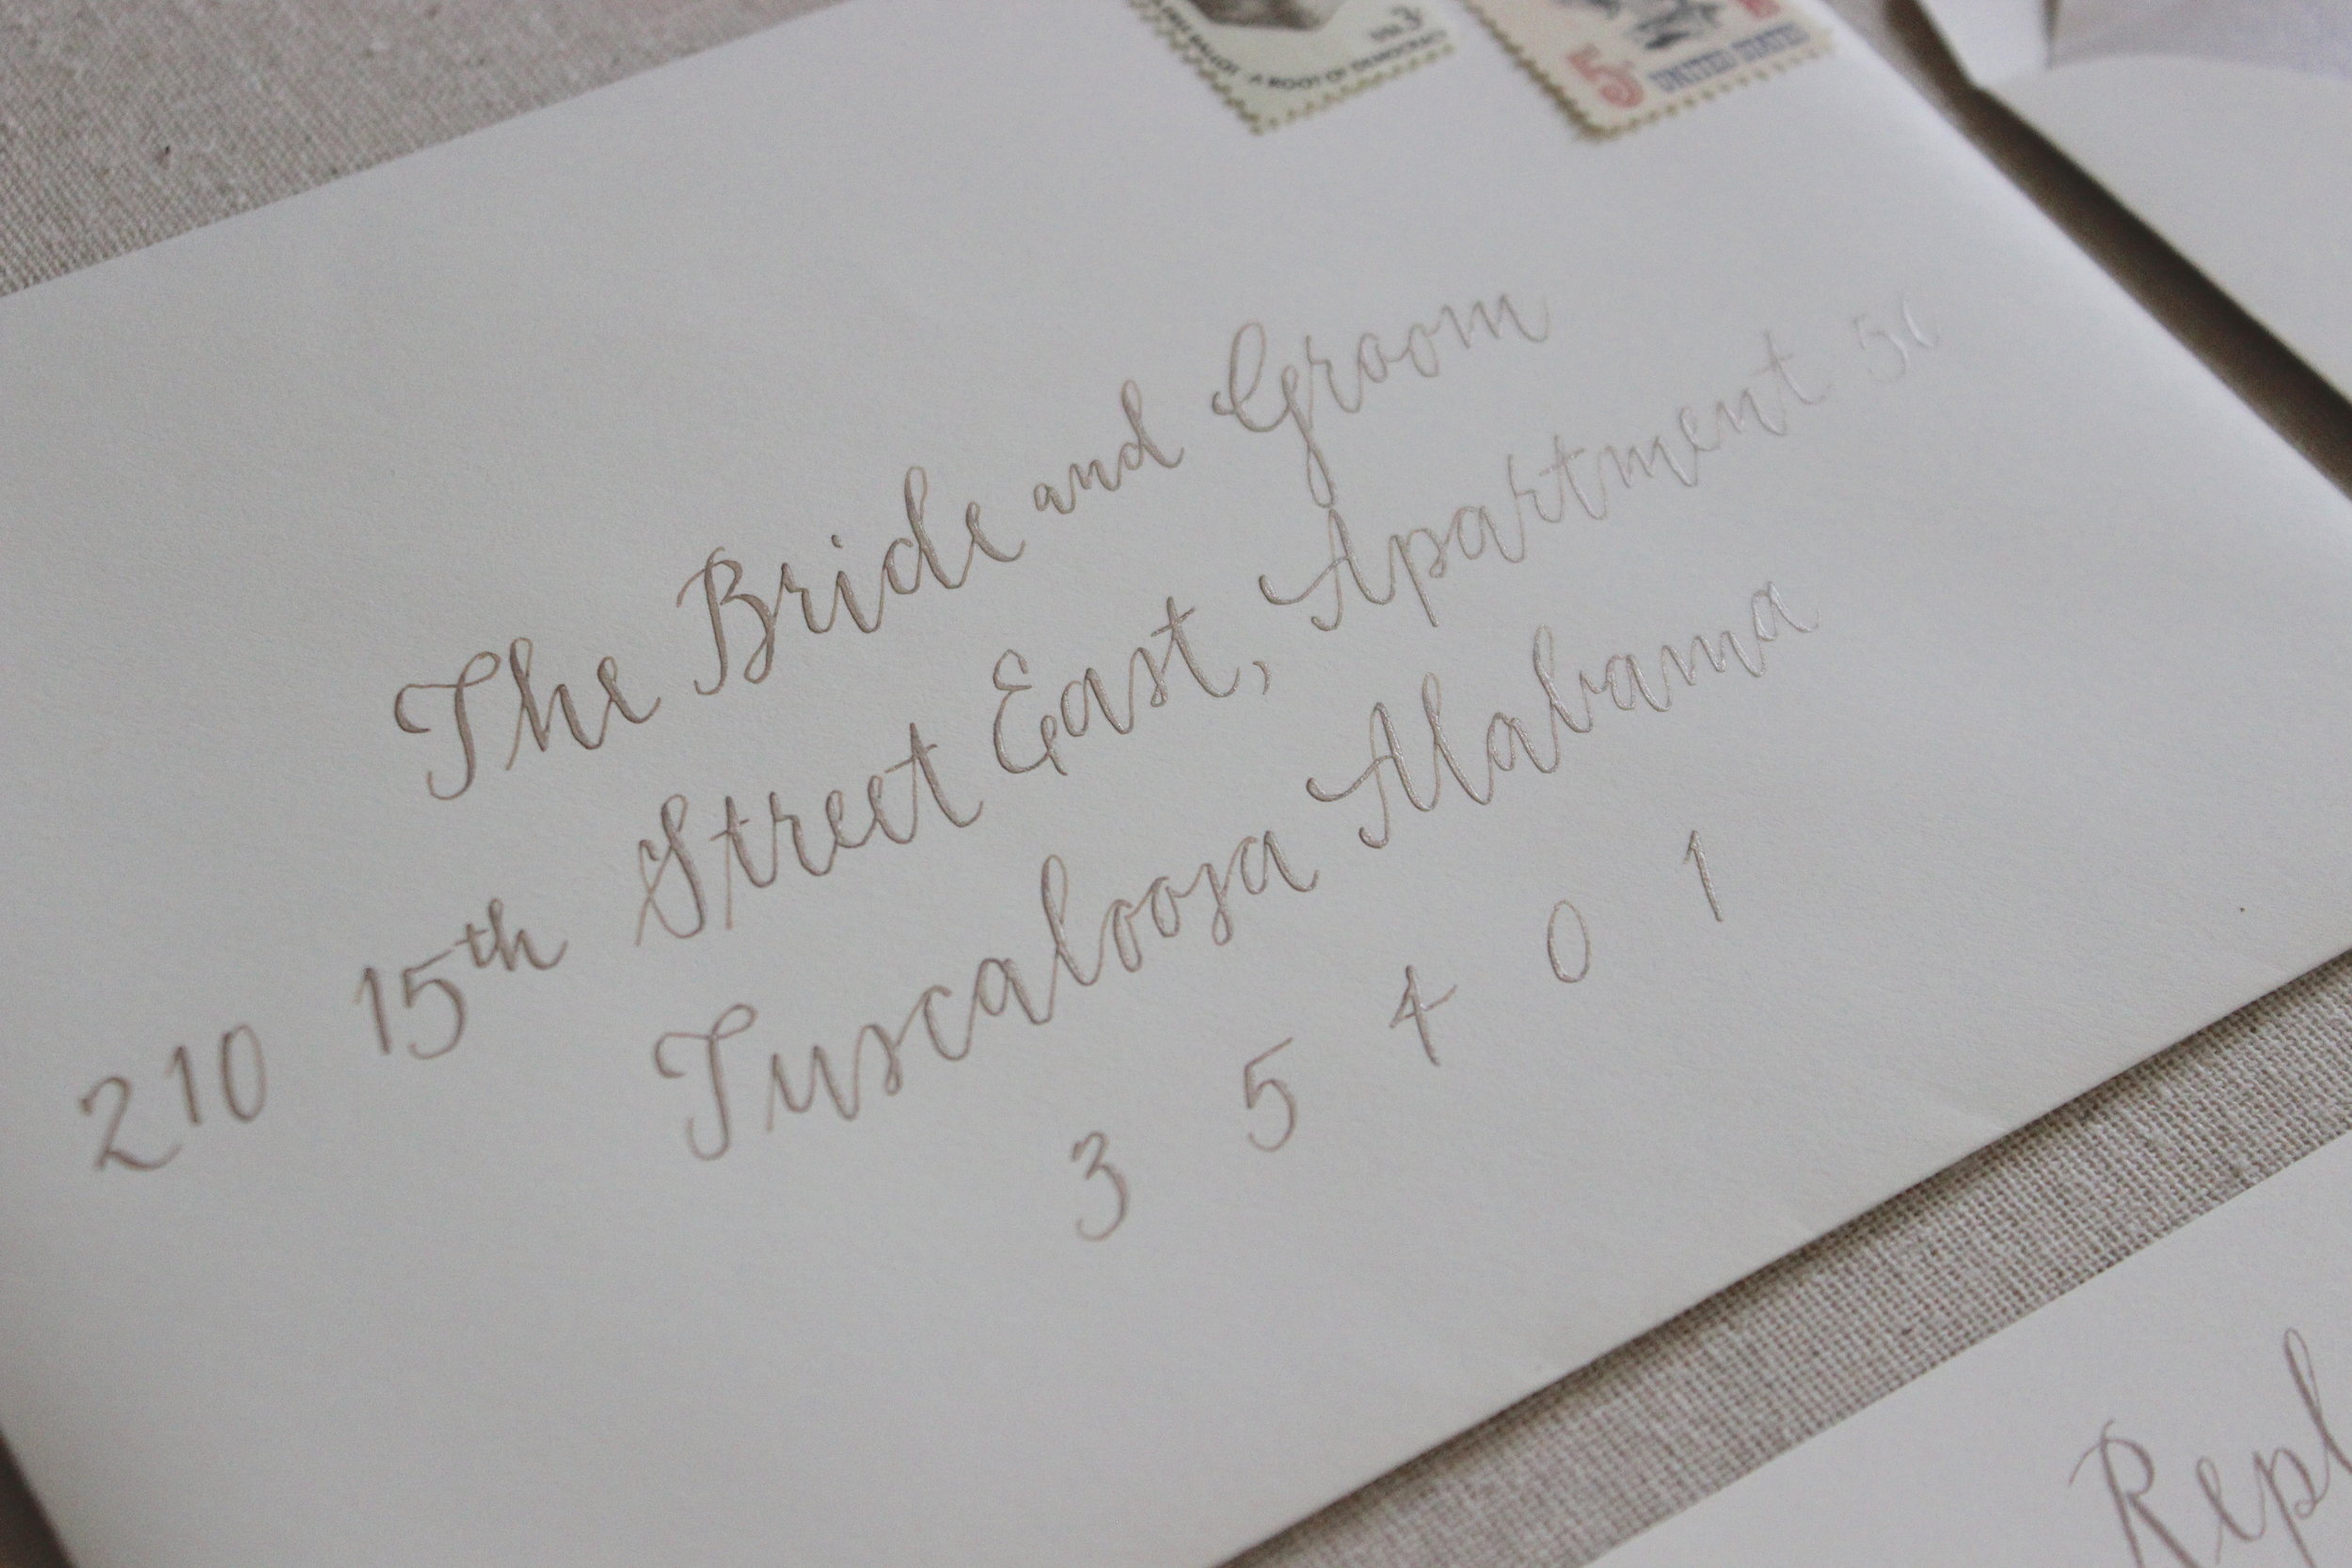 A ROOT OF DEMOCRACY
5c UNITED STATES
The Bride and Groom
210 15th Street East, Apartment
Tuscaloosa Alabama
3 5 4 0 1
Repl